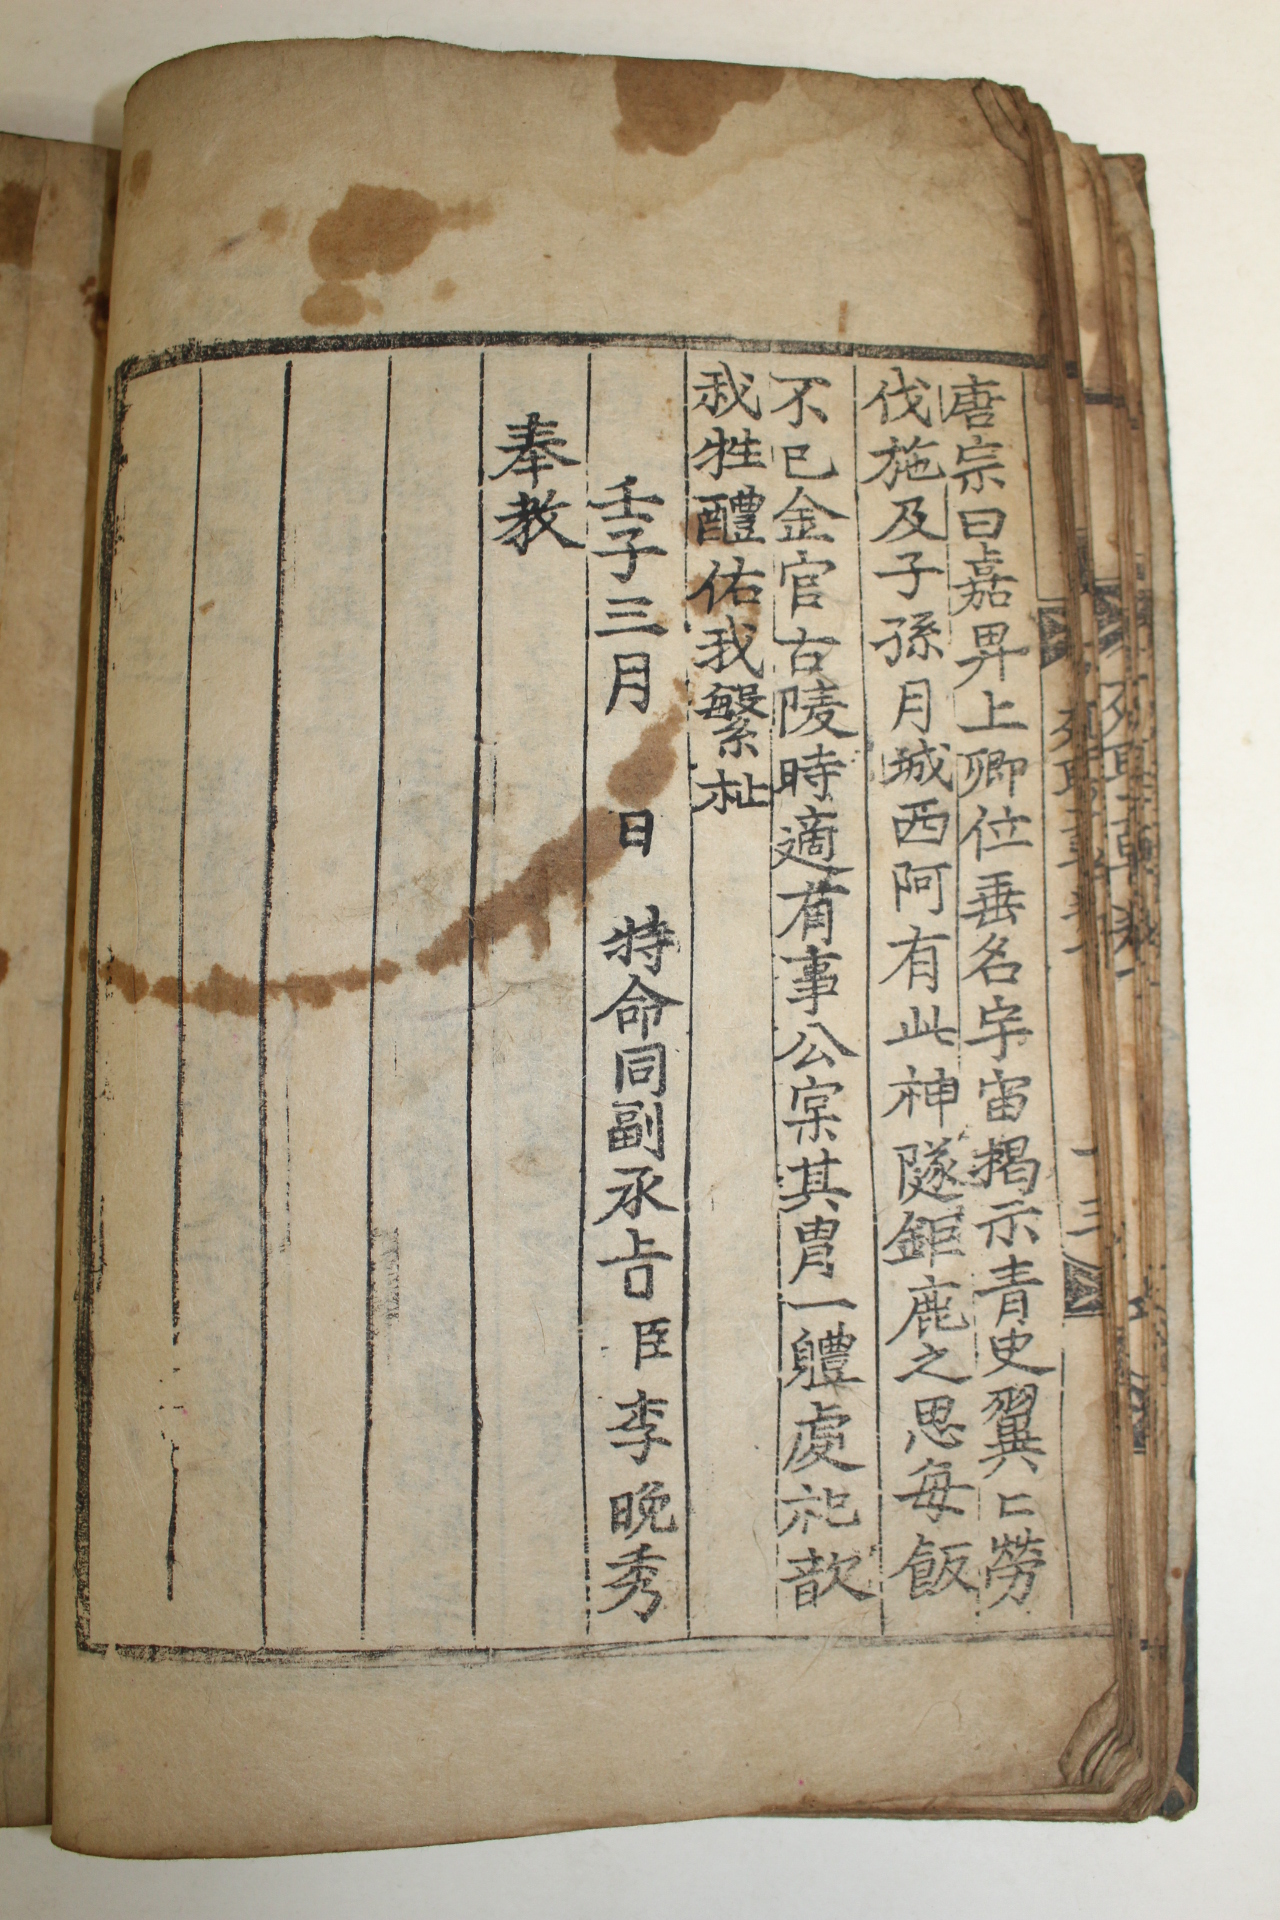 唐宗曰嘉畀上卿位垂名宇宙揭示青史翼〻勞
伐施及子孫月城西阿有此神隧鉅鹿之思每飯
不已金官古陵時適有事公寀其胄一軆處祀歆
我牲醴佑我繁祉
壬子三月 日 特命同副承旨臣李晩秀
奉教